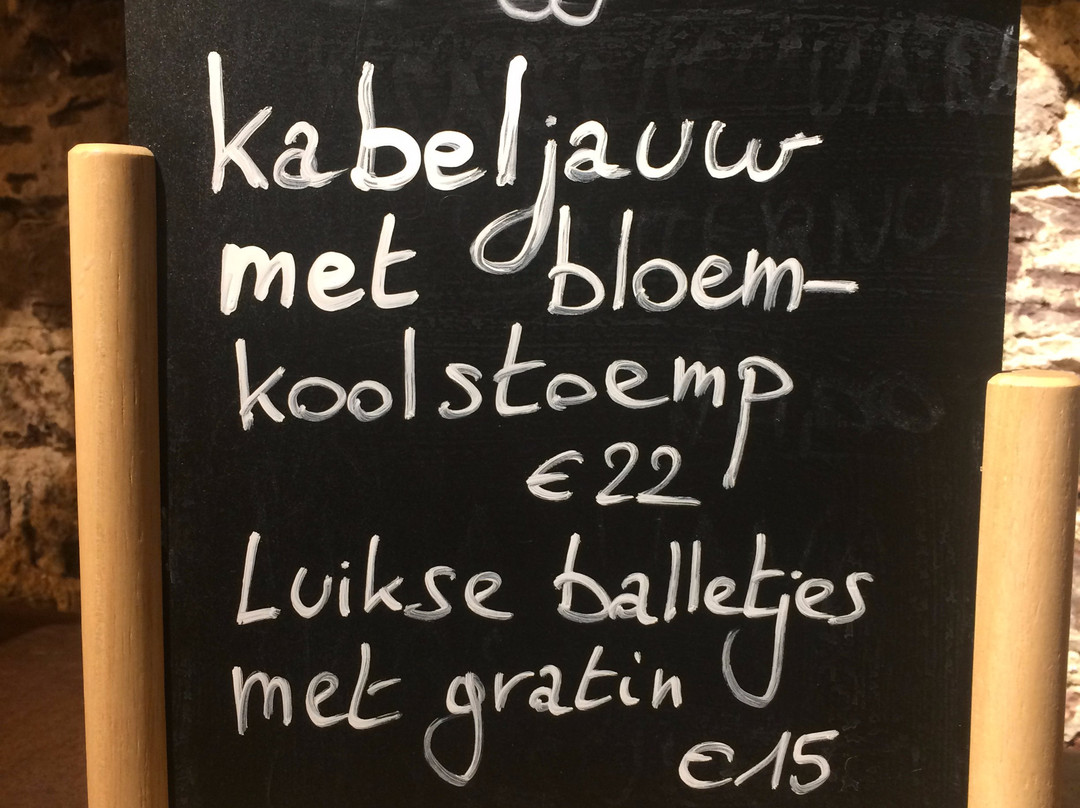 kabeljauw
met bloem-
koolstoemp
€22
Luikse balletjes
met gratin
€15